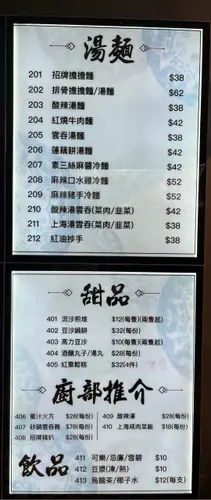 湯麵
201 招牌擔擔麵 $38
202 排骨擔擔麵/湯麵 $62
203 酸辣湯麵 $38
204 紅燒牛肉麵 $42
205 雲吞湯麵 $38
206 蓮藕餅湯麵 $42
207 素三絲麻醬冷麵 $42
208 麻辣口水雞冷麵 $52
209 麻辣豬手冷麵 $52
210 酸辣湯雲吞(菜肉/韭菜) $42
211 上海湯雲吞(菜肉/韭菜) $38
212 紅油抄手 $38
甜品
401 流沙煎堆 $12(每隻)(兩隻起)
402 豆沙鍋餅 $32(每份)
403 高力豆沙 $10(每隻)(兩隻起)
404 酒釀丸子/湯丸 $28(每份)
405 紅棗鬆糕 $32(4件)
廚部推介
406 蜜汁火方 $28(每份) 409 酸辣湯 $28(每份)
407 砂鍋雲吞雞 $78(每份) 410 上海咸肉菜飯 $18(每份)
408 招牌豬扒 $28(每份)
飲品
411 可樂/忌廉/雪碧 $10
412 豆漿(凍/熱) $10
413 烏龍茶/椰子水 $12(每支)